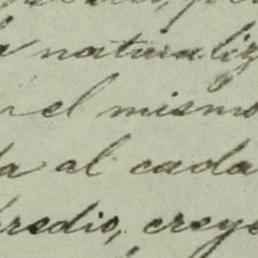 naturaliz
el mismo
al cada
redio, creye